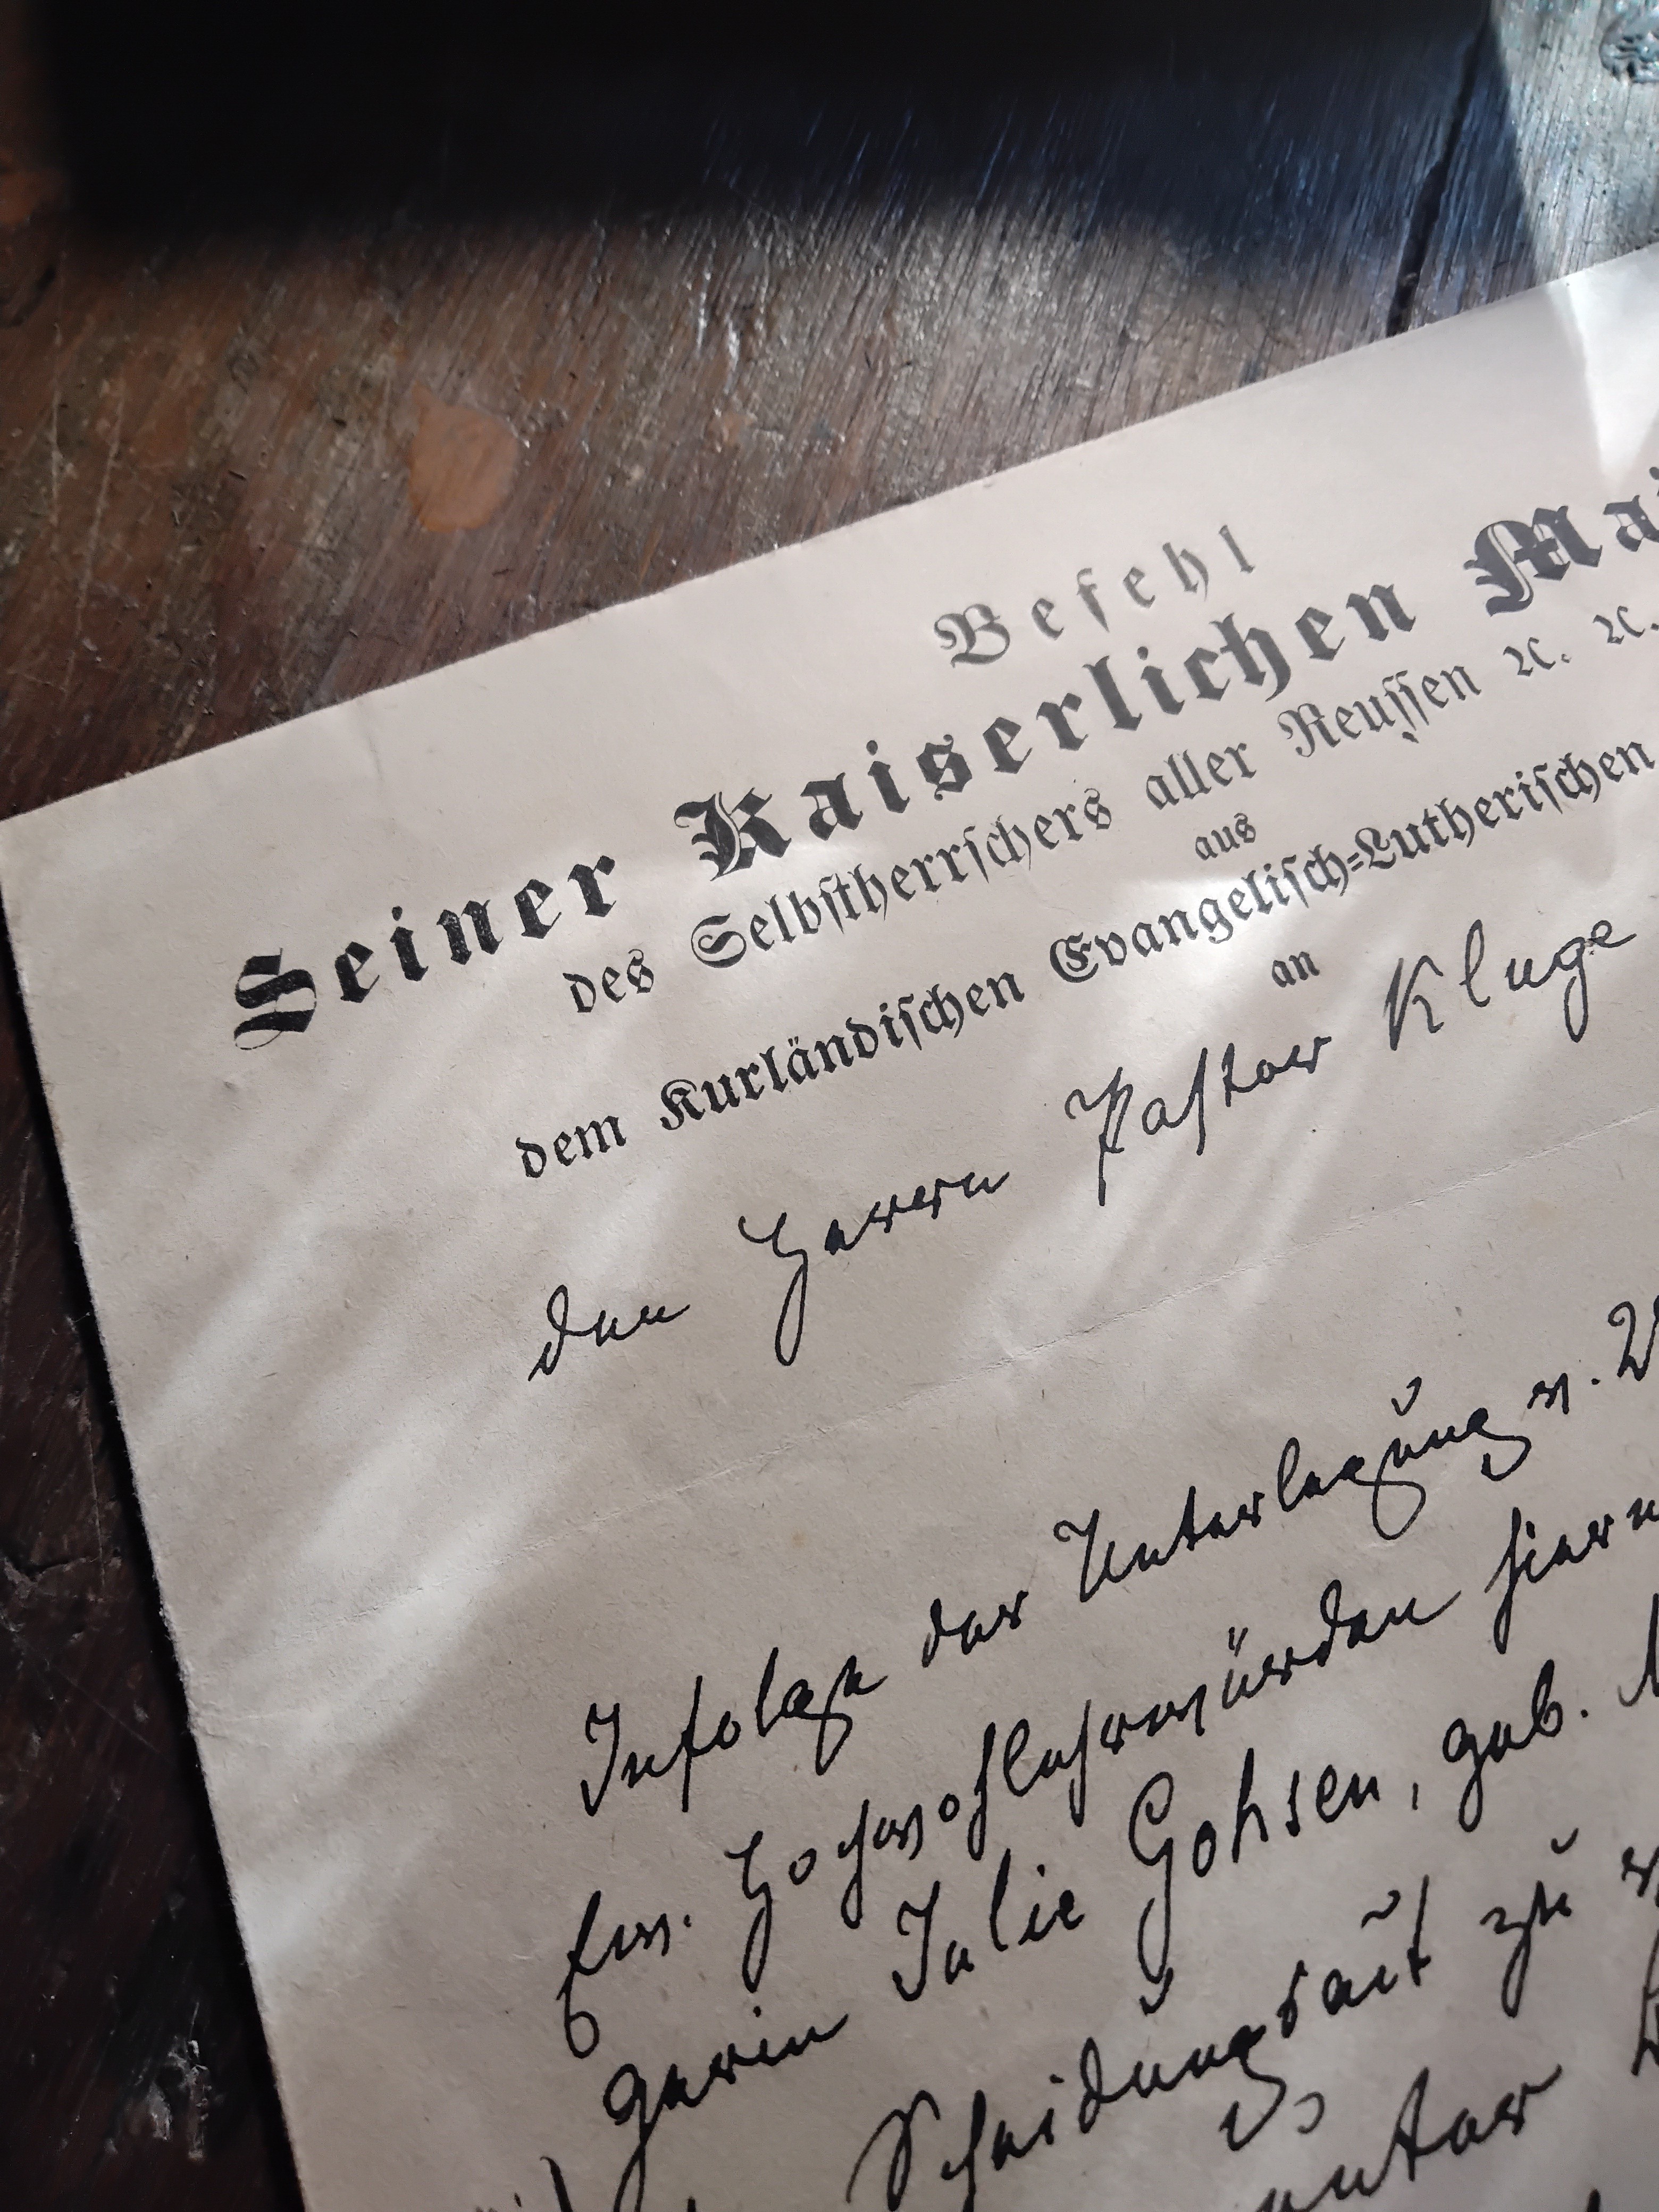 Befehl
Seiner Kaiserlichen Mai
des Selbſtherrſchers aller Reuſſen ꝛc. ꝛc.
aus
dem Kurländiſchen Evangeliſch-Lutheriſchen
an
den Herrn Paſtor Kluge
Infolge der Unterlegung v. W
Ew. Hochwohlehrwürden hierm
gerin Julie Gohsen, geb.
Scheidungsakt zu
unter